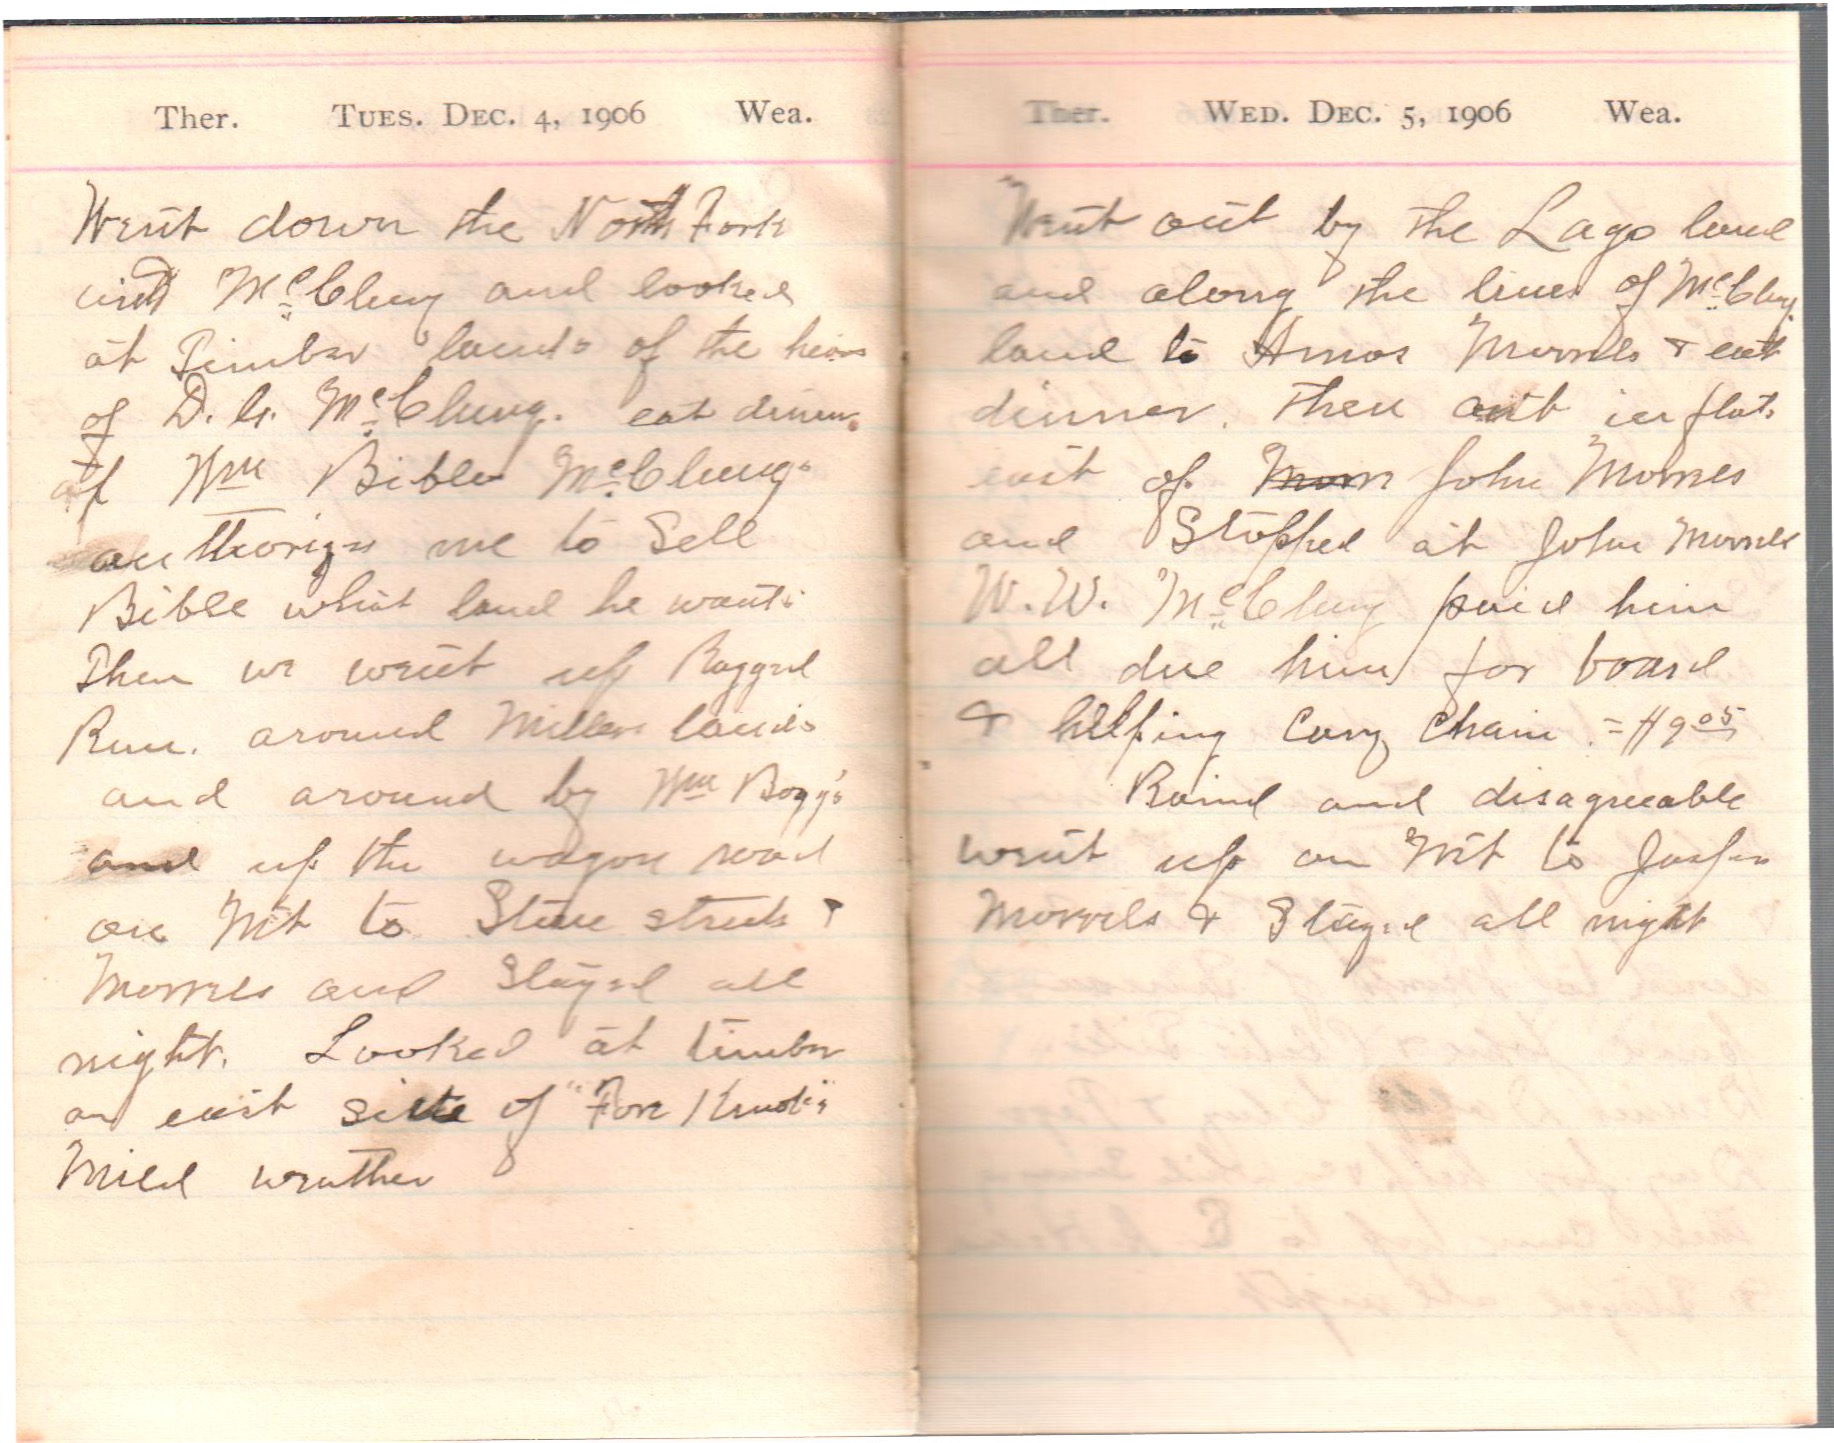 Ther. TUES. DEC. 4, 1906 Wea.
Went down the North Fork
with McClung and looked
at Timber lands of the heirs
of D. G. McClung. eat dinner
at Wm Bible McClung
authorizes me to Sell
Bible what land he wants
Then we went up Ragged
Run. around Millers lands
and around by Wm Bogg's
and up the wagon road
on Mt to Steve &
Morrels and Stayed all
night. Looked at timber
on east side of "Fore Knobs"
Mild weather
Ther. WED. DEC. 5, 1906 Wea.
Went out by the Lago land
and along the lines of McClung
land to Amos Morrels & eat
dinner. Then out in flats
east of John Morrels
and Stopped at John Morrels
W. W. McClung paid him
all due him for board
& helping Cary Chain = $9.05
Raind and disagreeable
went up on Mt to Jasper
Morrels & Stayed all night